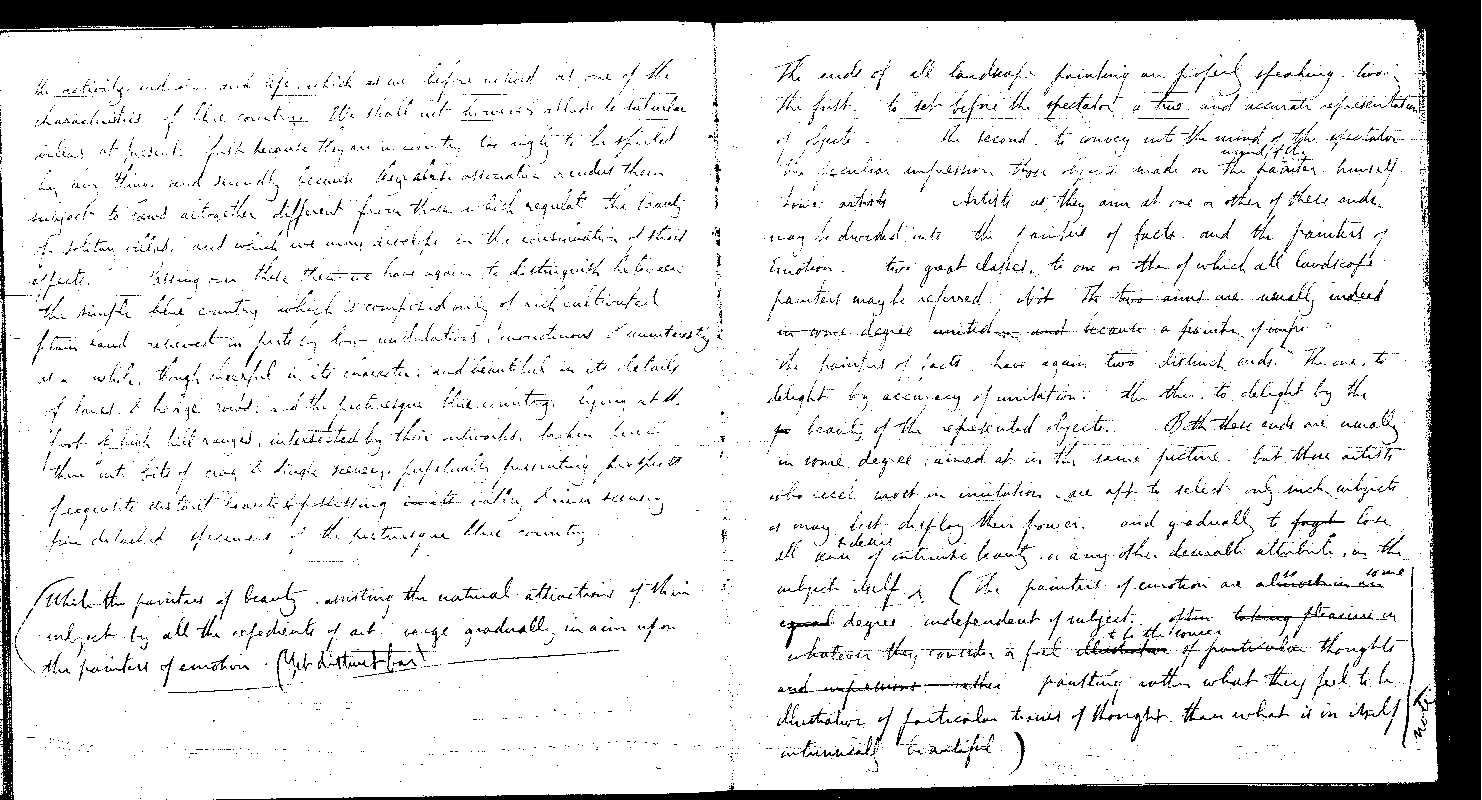 the activity and and life, which as we before noticed is one of the
characteristics of blue country. We shall not however allude to
at present. first because they are in country too to be spoiled
by and secondly because association renders them
subject to laws altogether different from those which regulate the beauty
of solitary and which we may develope in the consideration of street
effects. Passing over these then we have again to distinguish between
the simple blue country which is composed only of rich cultivated
plain land relieved in parts by low undulations, monotonous & uninteresting
as a whole, though cheerful in its character, and beautiful in its details
of lanes & hedge rows, and the picturesque blue country, lying at the
foot of high hill ranges, intersected by their outworks, broken
them into bits of crag & dingle scenery, perpetually presenting prospects
of exquisite distant possessing valley & river scenery
fine detached specimens of the picturesque blue country.
(While the painters of beauty, assisting the natural attractions of their
subject by all the expedients of art, verge gradually in aim upon
the painters of emotion. (Yet distinct
The ends of all landscape painting are properly speaking two.
the first to set before the spectator a true and accurate representation
of objects. the second to convey into the mind of the spectator
the peculiar impression those objects made on the mind of the painter himself.
artists Artists as they aim at one or other of these ends
may be divided into the painters of facts and the painters of
Emotion. two great classes, to one or other of which all landscape
painters may be referred. Not the two aims are usually indeed
in some degree united and because a painter of
the painters of facts have again two distinct ends. The one, to
delight by accuracy of imitation: the other, to delight by the
beauty of the represented objects. Both these ends are usually
in some degree aimed at in the same picture. but those artists
who excel most in imitation, are apt to select only such subjects
as may best display their power, and gradually to forget lose
all sense & desire of intrinsic beauty or any other desirable attribute, in the
subject itself. (The painters of emotion are also in some
equal degree independent of subject. often taking pleasure in
whatever they consider or feel illustration to be the source of particular thoughts
and impressions, rather painting rather what they feel to be
illustrative of particular trains of thought than what is in itself
intrinsically beautiful.)
note